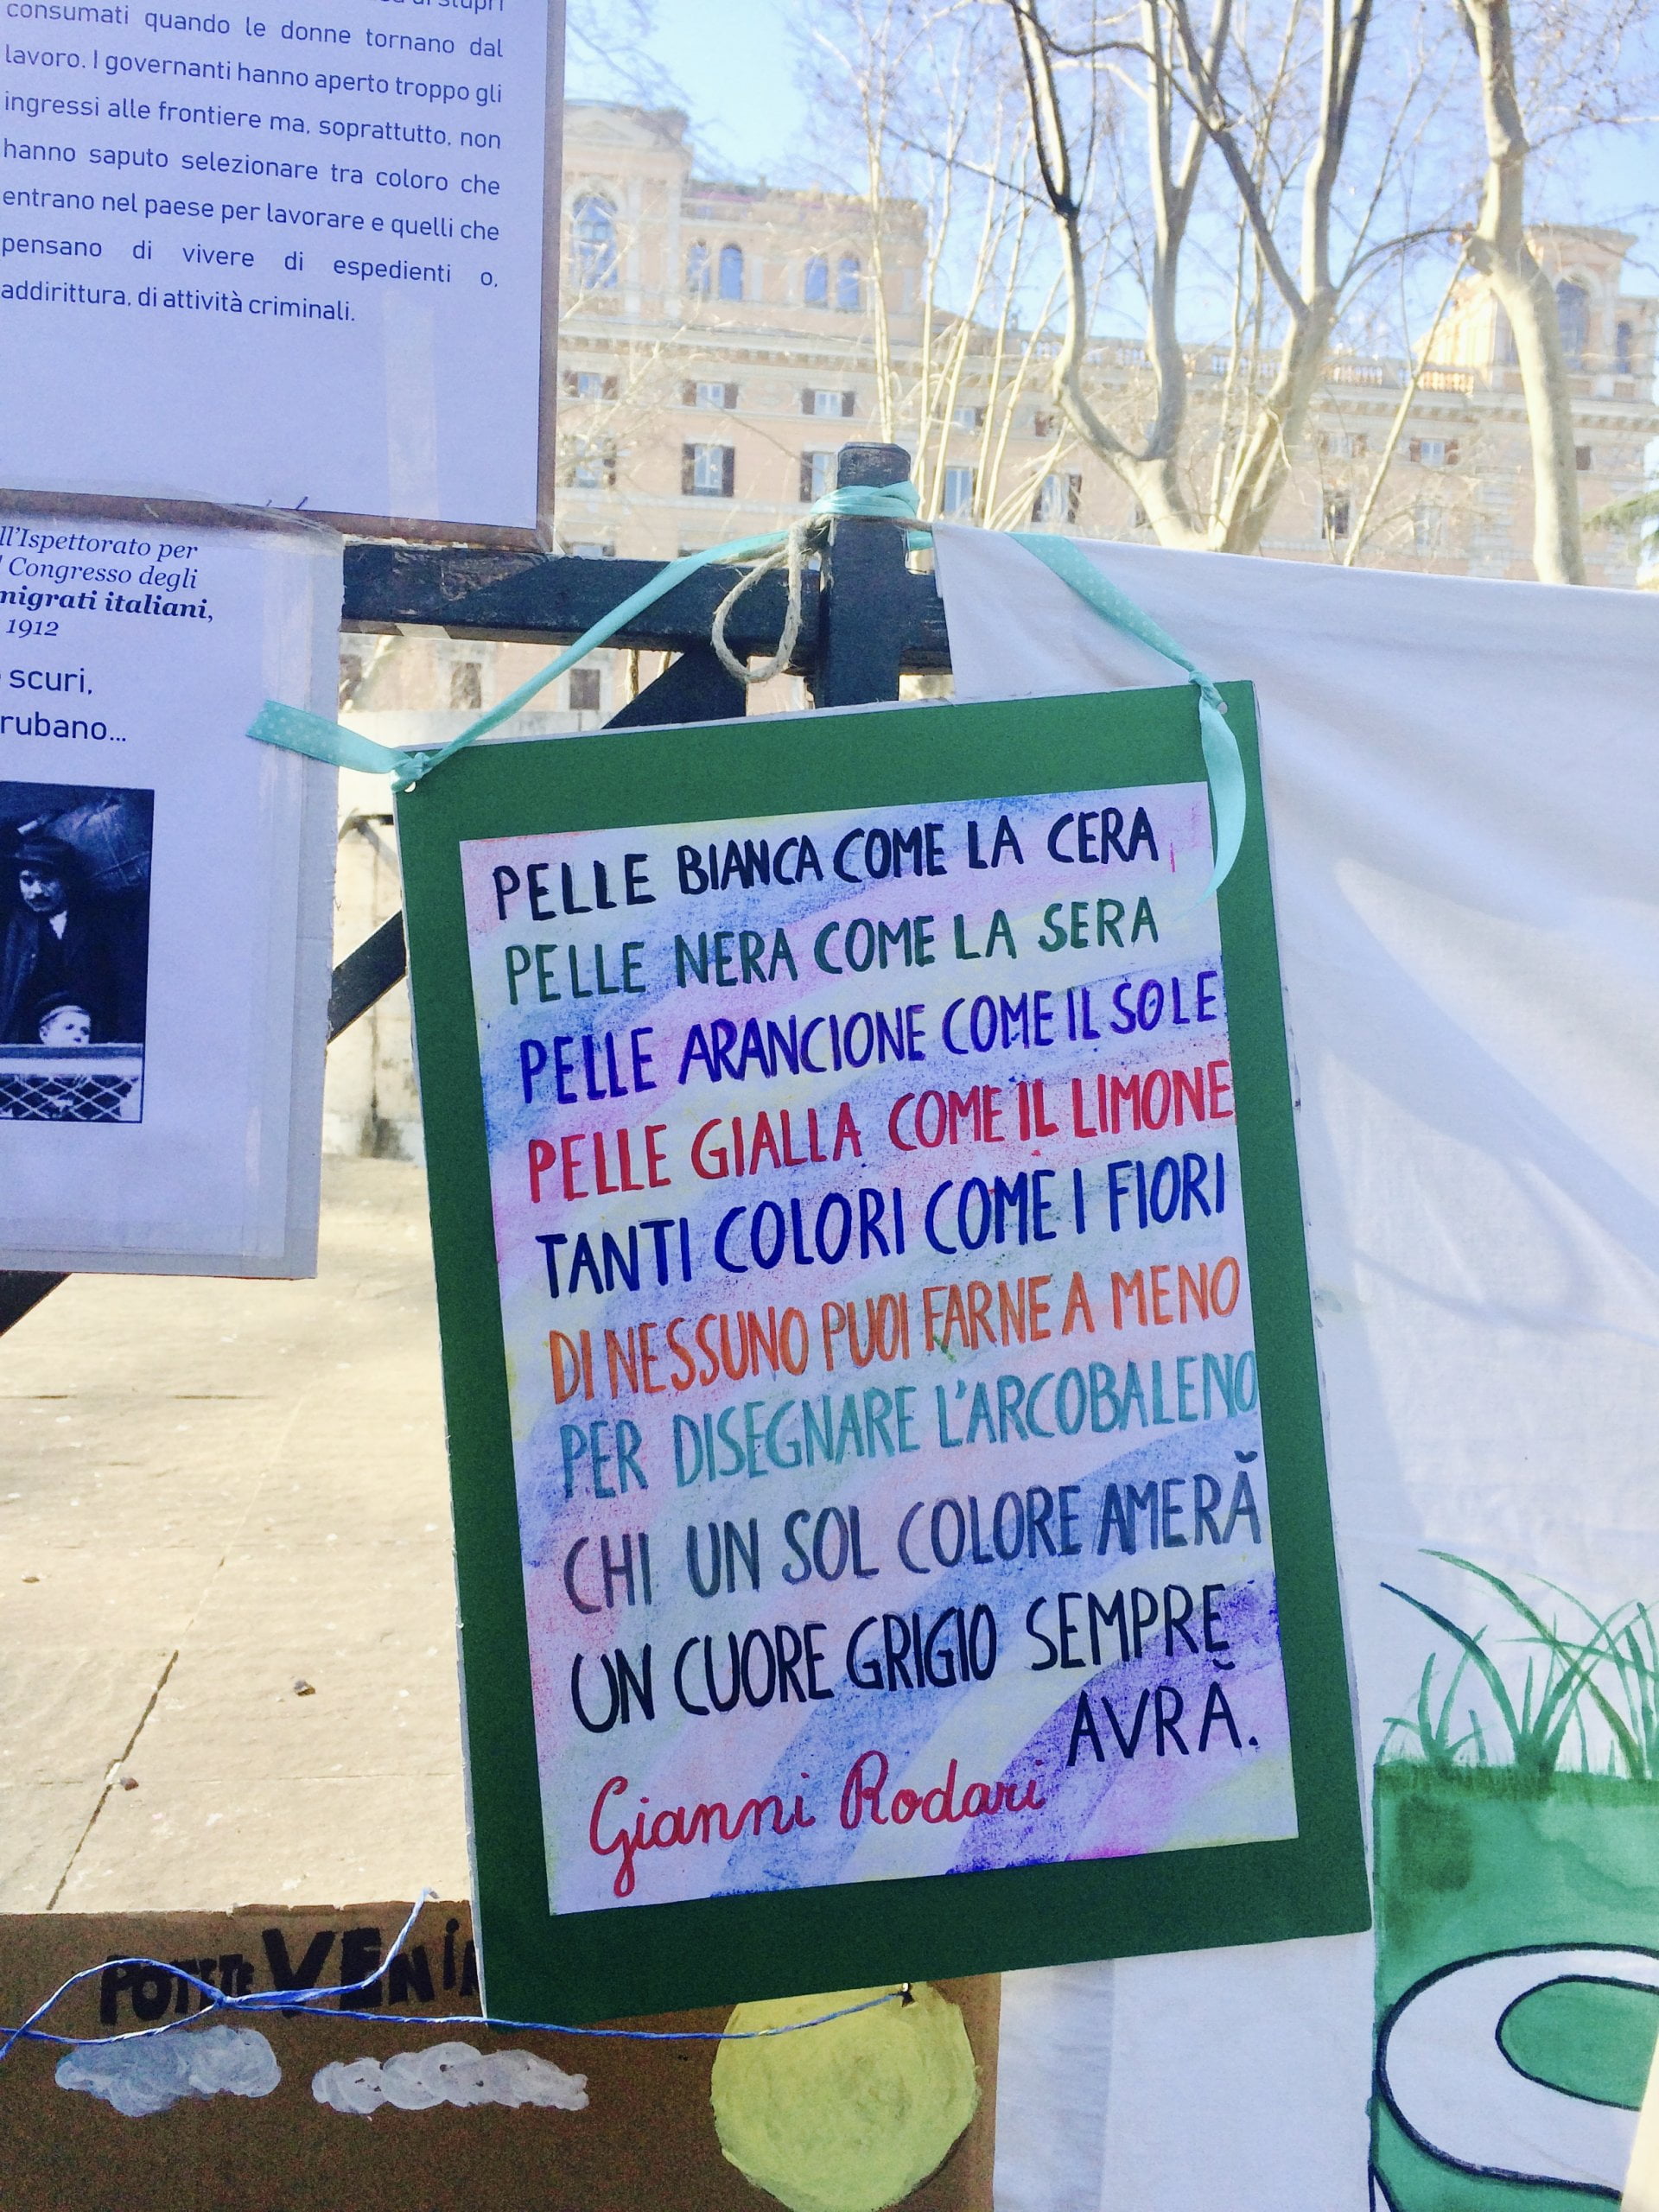 consumati quando le donne tornano dal
lavoro. I governanti hanno aperto troppo gli
ingressi alle frontiere ma, soprattutto, non
hanno saputo selezionare tra coloro che
entrano nel paese per lavorare e quelli che
pensano di vivere di espedienti o,
addirittura, di attività criminali.
ll'Ispettorato per
l Congresso degli
migrati italiani,
1912
scuri,
rubano...
PELLE BIANCA COME LA CERA
PELLE NERA COME LA SERA
PELLE ARANCIONE COME IL SOLE
PELLE GIALLA COME IL LIMONE
TANTI COLORI COME I FIORI
DI NESSUNO PUOI FARNE A MENO
PER DISEGNARE L'ARCOBALENO
CHI UN SOL COLORE AMERÀ
UN CUORE GRIGIO SEMPRE
AVRÀ.
Gianni Rodari
POTETE VENI